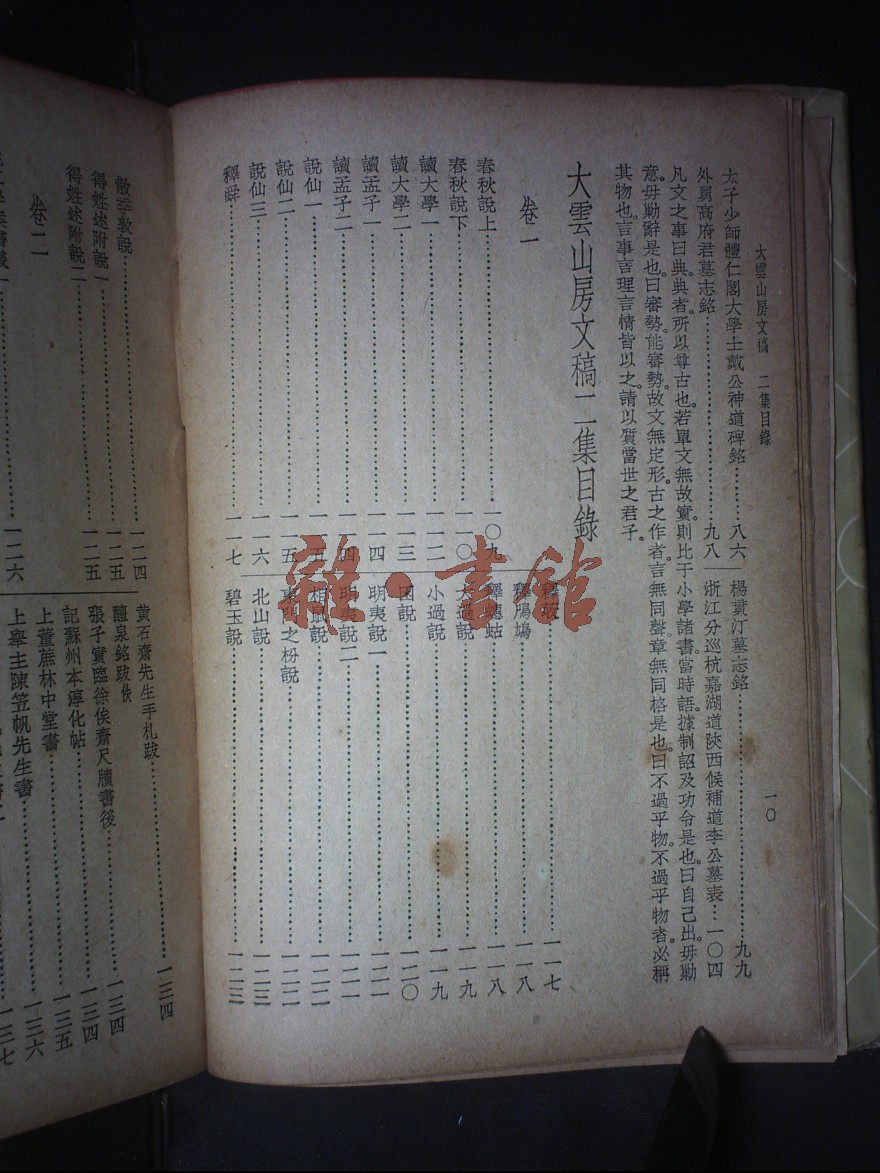 大雲山房文稿 二集目錄
一〇
太子少師體仁閣大學士戴公神道碑銘………八六
楊蕡汀墓志銘………九九
外舅高府君墓志銘………九八
浙江分巡杭嘉湖道陝西候補道李公墓表…一〇四
凡文之事曰典典者。所以尊古也。若單文無故實。則比于小學諸書。當時語。據制詔及功令是也。曰自己出。毋勦
意。毋勦辭是也。曰審勢。能審勢。故文無定形。古之作者。言無同聲。章無同格是也。曰不過乎物。不過乎物者。必稱
其物也。言事言理言情皆以之。請以質當世之君子。
大雲山房文稿二集目錄
卷一
春秋說上………一〇九
春秋說下………一一〇
讀大學一………一一二
讀大學二………一一三
讀孟子一………一一四
讀孟子二………一一四
說仙一………一一五
說仙二………一一五
說仙三………一一六
釋舜………一一七
………一一七
釋鳲鳩………一一八
釋蟪蛄………一一八
大過說………一一九
小過說………一一九
困說………一二〇
明夷說一………一二一
明夷說二………一二一
相鼠說………一二二
東門之枌說………一二二
北山說………一二三
碧玉說………一二三
散季敦說………一二四
得姓述附說一………一二五
得姓述附說二………一二五
卷二
一二六
黃石齋先生手札跋………一三四
醴泉銘跋佚………一三四
張子實臨徐俟齋尺牘書後………一三四
記蘇州本淳化帖………一三五
上董蔗林中堂書………一三六
上舉主陳笠帆先生書………一三七
雜·書館